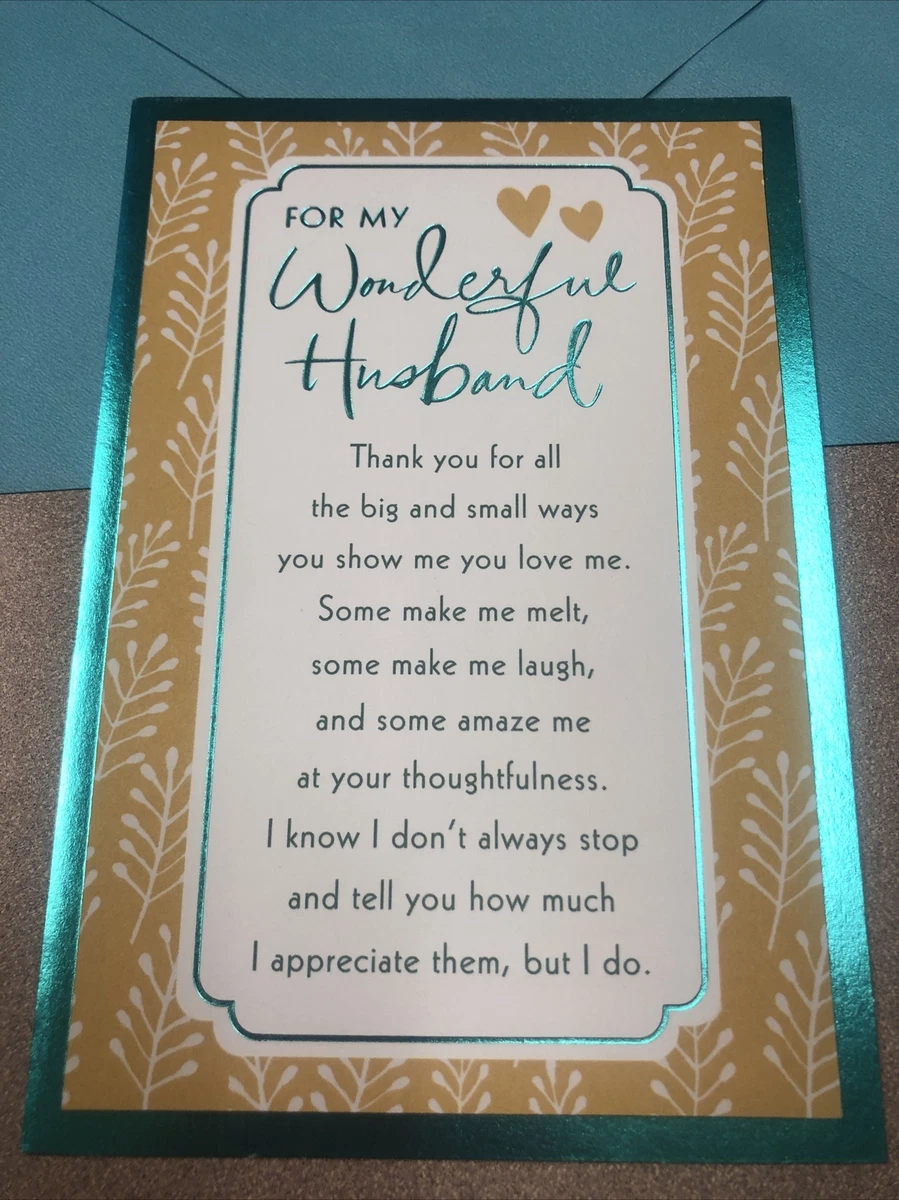 FOR MY
Wonderful
Husband
Thank you for all
the big and small ways
you show me you love me.
Some make me melt,
some make me laugh,
and some amaze me
at your thoughtfulness.
I know I don't always stop
and tell you how much
I appreciate them, but I do.